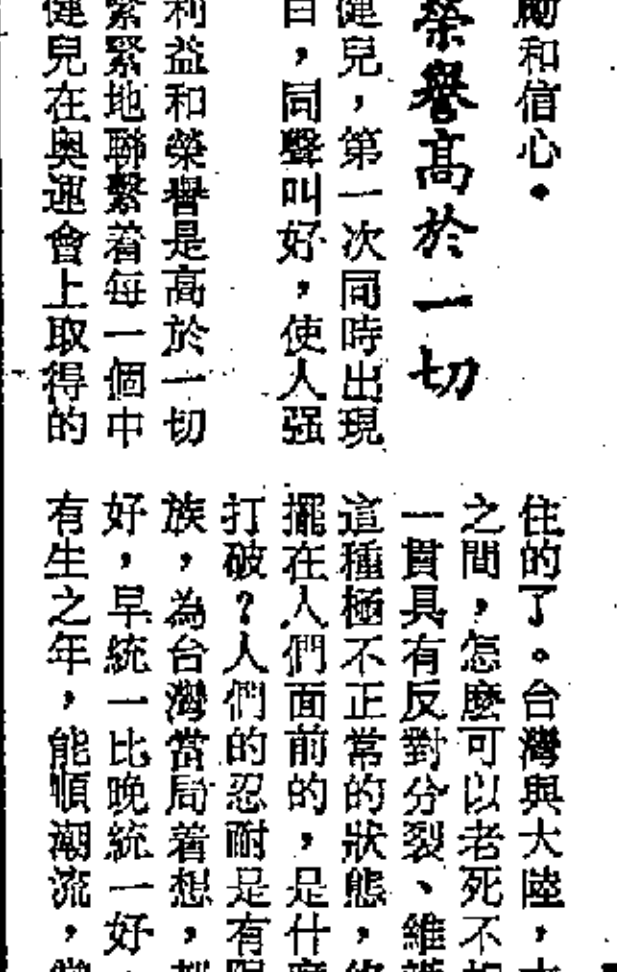 勵和信心。
榮譽高於一切
健兒，第一次同時出現
目，同聲叫好，使人强
利益和榮譽是高於一切
緊緊地聯繫着每一個中
健兒在奥運會上取得的
住的了。台灣與大陸，
之間，怎麼可以老死不
一貫具有反對分裂、維
這種極不正常的狀態，
擺在人們面前的，是什
打破？人們的忍耐是有
族，為台灣當局着想，
好，早統一比晚統一好，
有生之年，能順潮流，